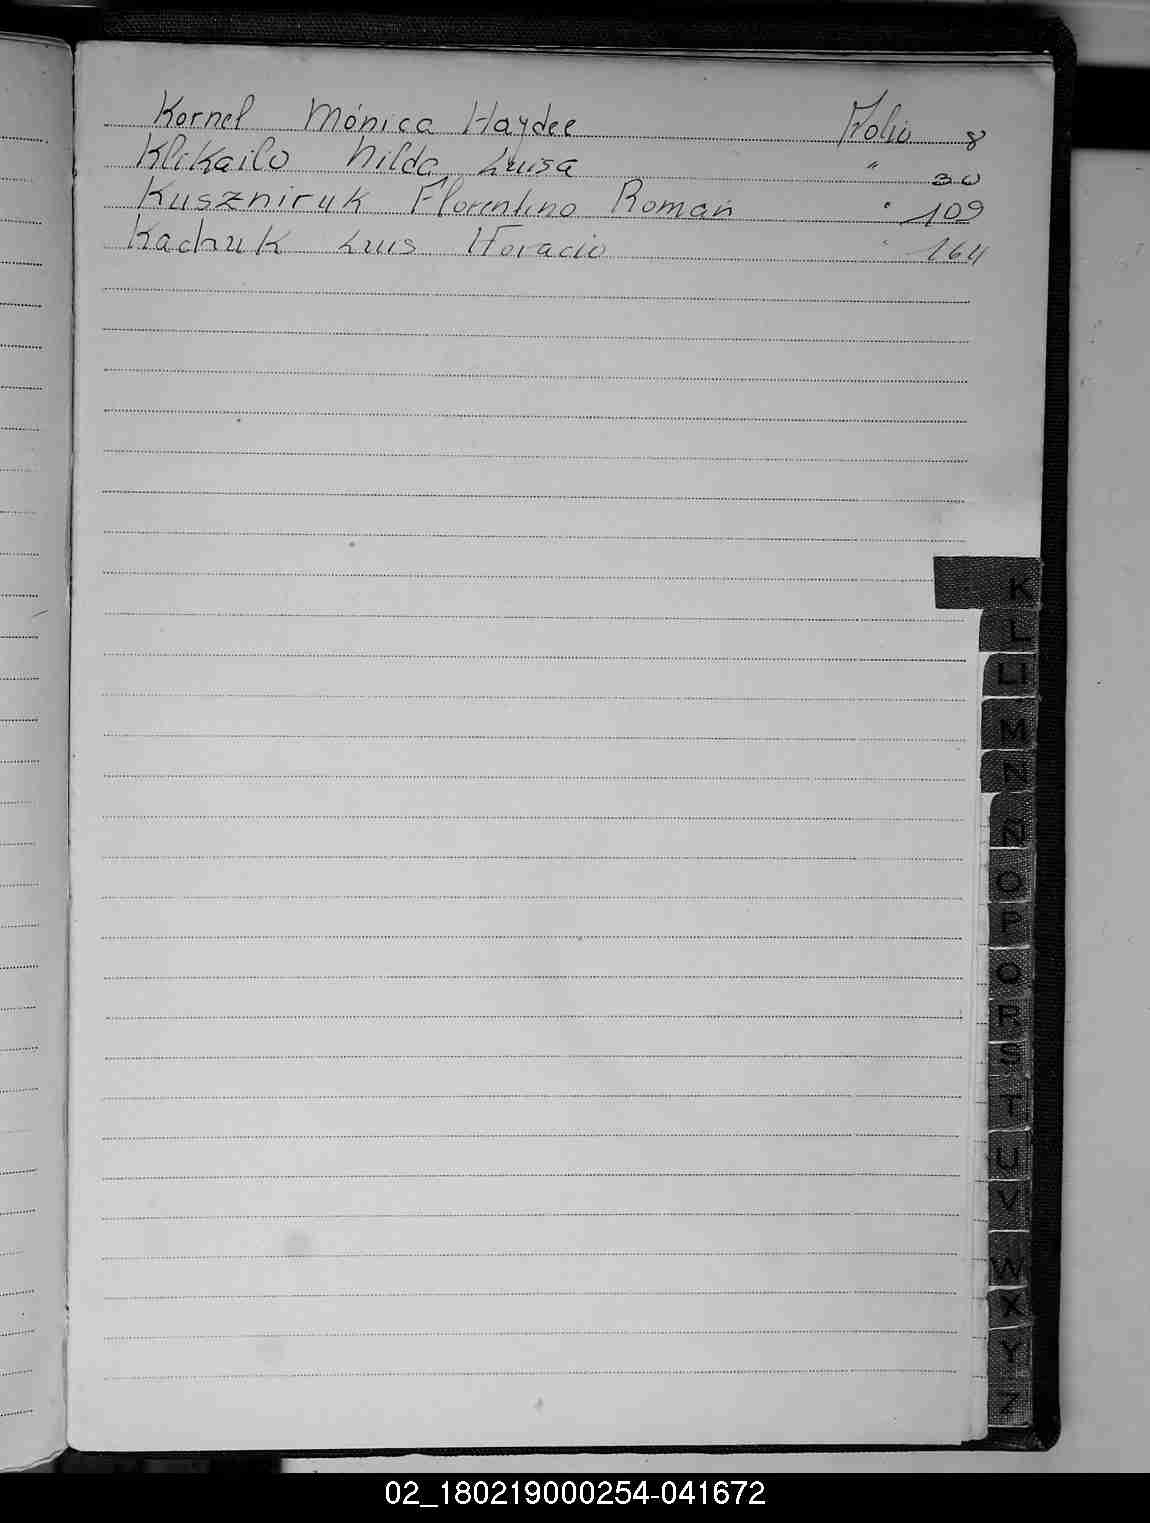 Kornel Mónica Haydee Folio 8
Klikailo Nilda Luisa " 30
Kuszniruk Florentino Roman " 109
Kachuk Luis Horacio " 164
K
L
Ll
M
N
Ñ
O
P
Q
R
S
T
U
V
W
X
Y
Z
02_180219000254-041672